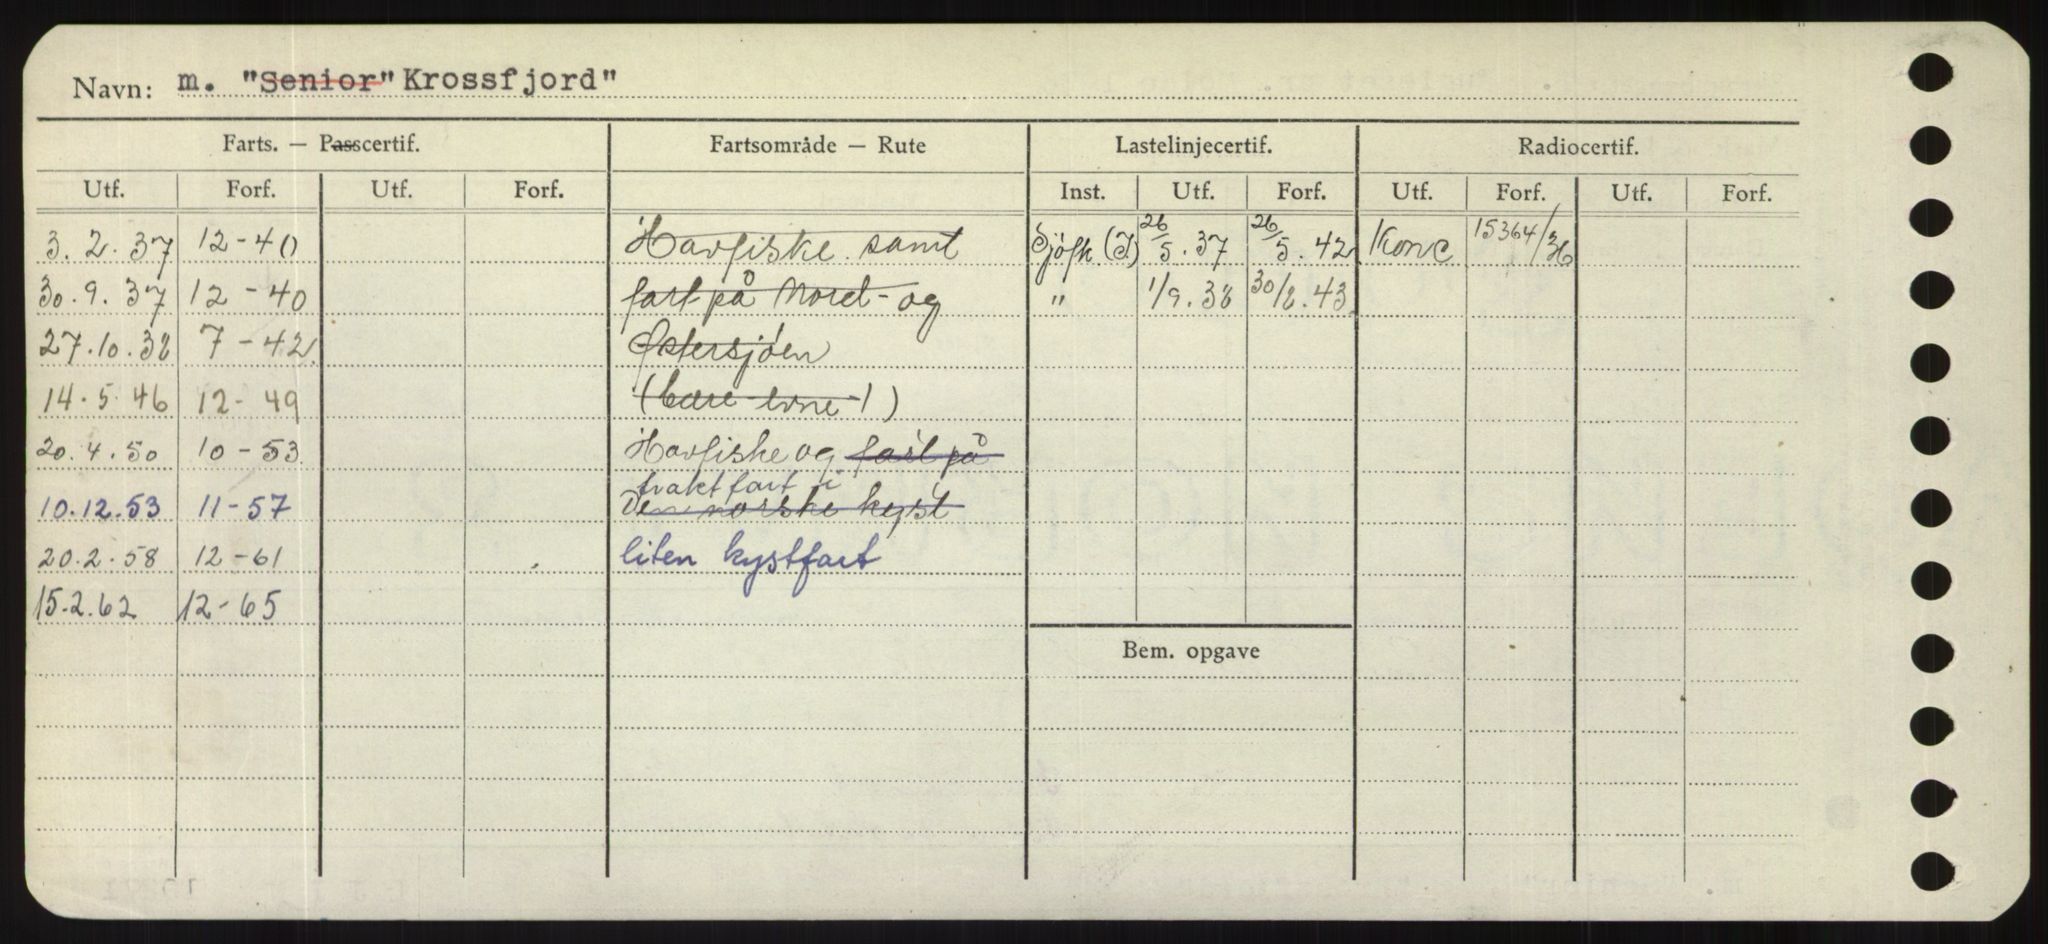 Navn: m. "Senior" Krossfjord"
Farts. — Passcertif. Fartsområde — Rute Lastelinjecertif. Radiocertif.
Utf. Forf. Utf. Forf. Inst. Utf. Forf. Utf. Forf. Utf. Forf.
3. 2. 37 12-40 Havfiske samt Sjöfk. (I) 26/5. 37 26/5. 42 Konc 15364/36
30. 9. 37 12-40 fart på Nord- og " 1/9. 38 30/8. 43
27. 10. 38 7-42 Østersjöen
14. 5. 46 12-49 (bære-evne-1)
20. 4. 50 10-53 Havfiske og fart på
traktfart i
10. 12. 53 11-57 Den norske kyst
20. 2. 58 12-61 liten kystfart
15. 2. 62 12-65
Bem. opgave